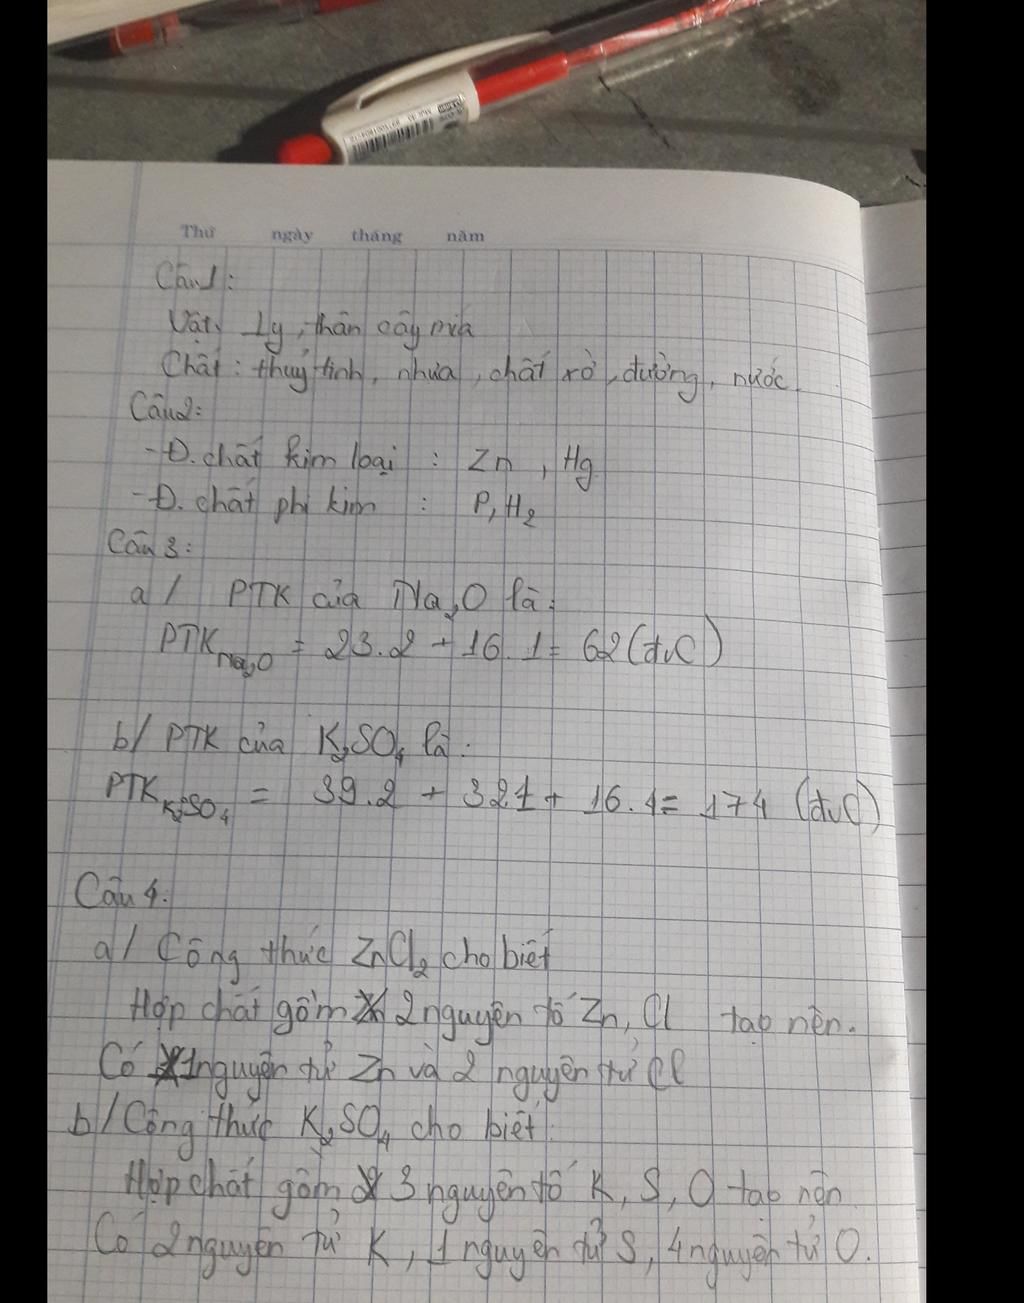 Thứ ngày tháng năm
Câu 1:
Vật: Ly, thân cây mía
Chất: thuỷ tinh, nhựa, chất xơ, đường, nước.
Câu 2:
- Đ. chất kim loại : Zn, Hg
- Đ. chất phi kim : P, H₂
Câu 3:
a/ PTK của Na₂O là:
PTK Na₂O = 23.2 + 16.1 = 62 (đvC)
b/ PTK của K₂SO₄ là:
PTK K₂SO₄ = 39.2 + 32.1 + 16.4 = 174 (đvC)
Câu 4.
a/ Công thức ZnCl₂ cho biết
Hợp chất gồm 2 nguyên tố Zn, Cl tạo nên.
Có 1 nguyên tử Zn và 2 nguyên tử Cl
b/ Công thức K₂SO₄ cho biết:
Hợp chất gồm 3 nguyên tố K, S, O tạo nên
Có 2 nguyên tử K, 1 nguyên tử S, 4 nguyên tử O.